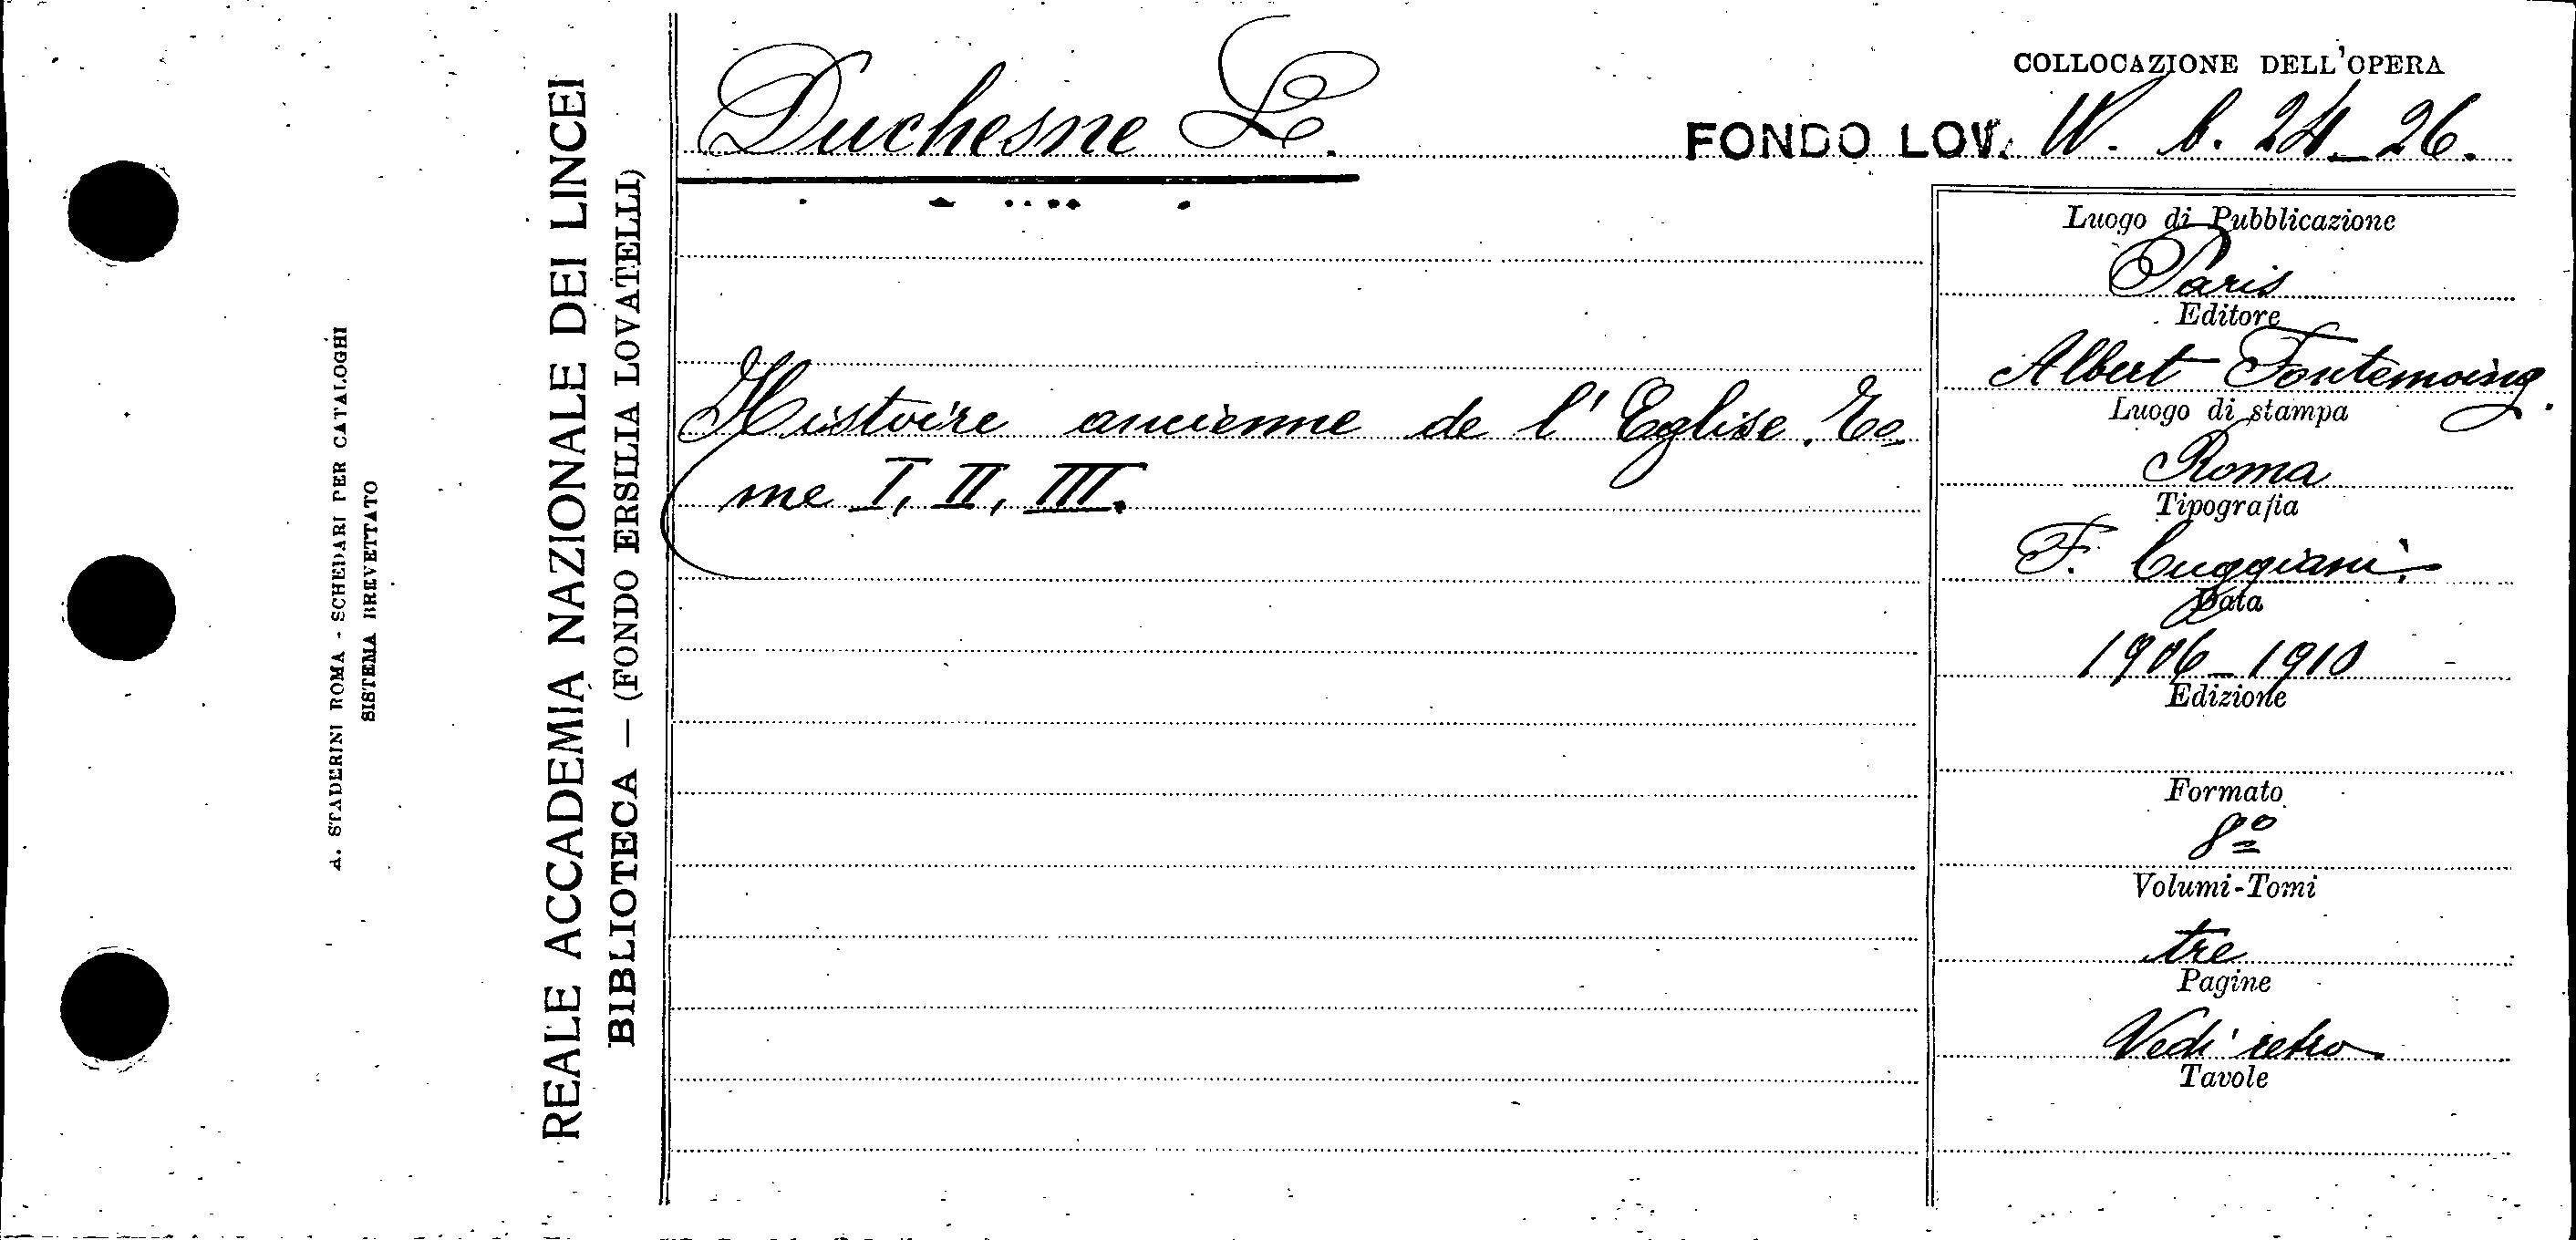 A. STADERINI ROMA - SCHEDARI PER CATALOGHI
SISTEMA BREVETTATO
REALE ACCADEMIA NAZIONALE DEI LINCEI
BIBLIOTECA — (FONDO ERSILIA LOVATELLI)
Duchesne L.
COLLOCAZIONE DELL'OPERA
FONDO LOV. W. b. 24_26.
Histoire ancienne de l'Eglise. To=
me I, II, III.
Luogo di Pubblicazione
Paris
Editore
Albert Fontemoing.
Luogo di stampa
Roma
Tipografia
F. Cuggiani.
Data
1906_1910
Edizione
Formato
8º
Volumi-Tomi
tre
Pagine
Vedi retro
Tavole